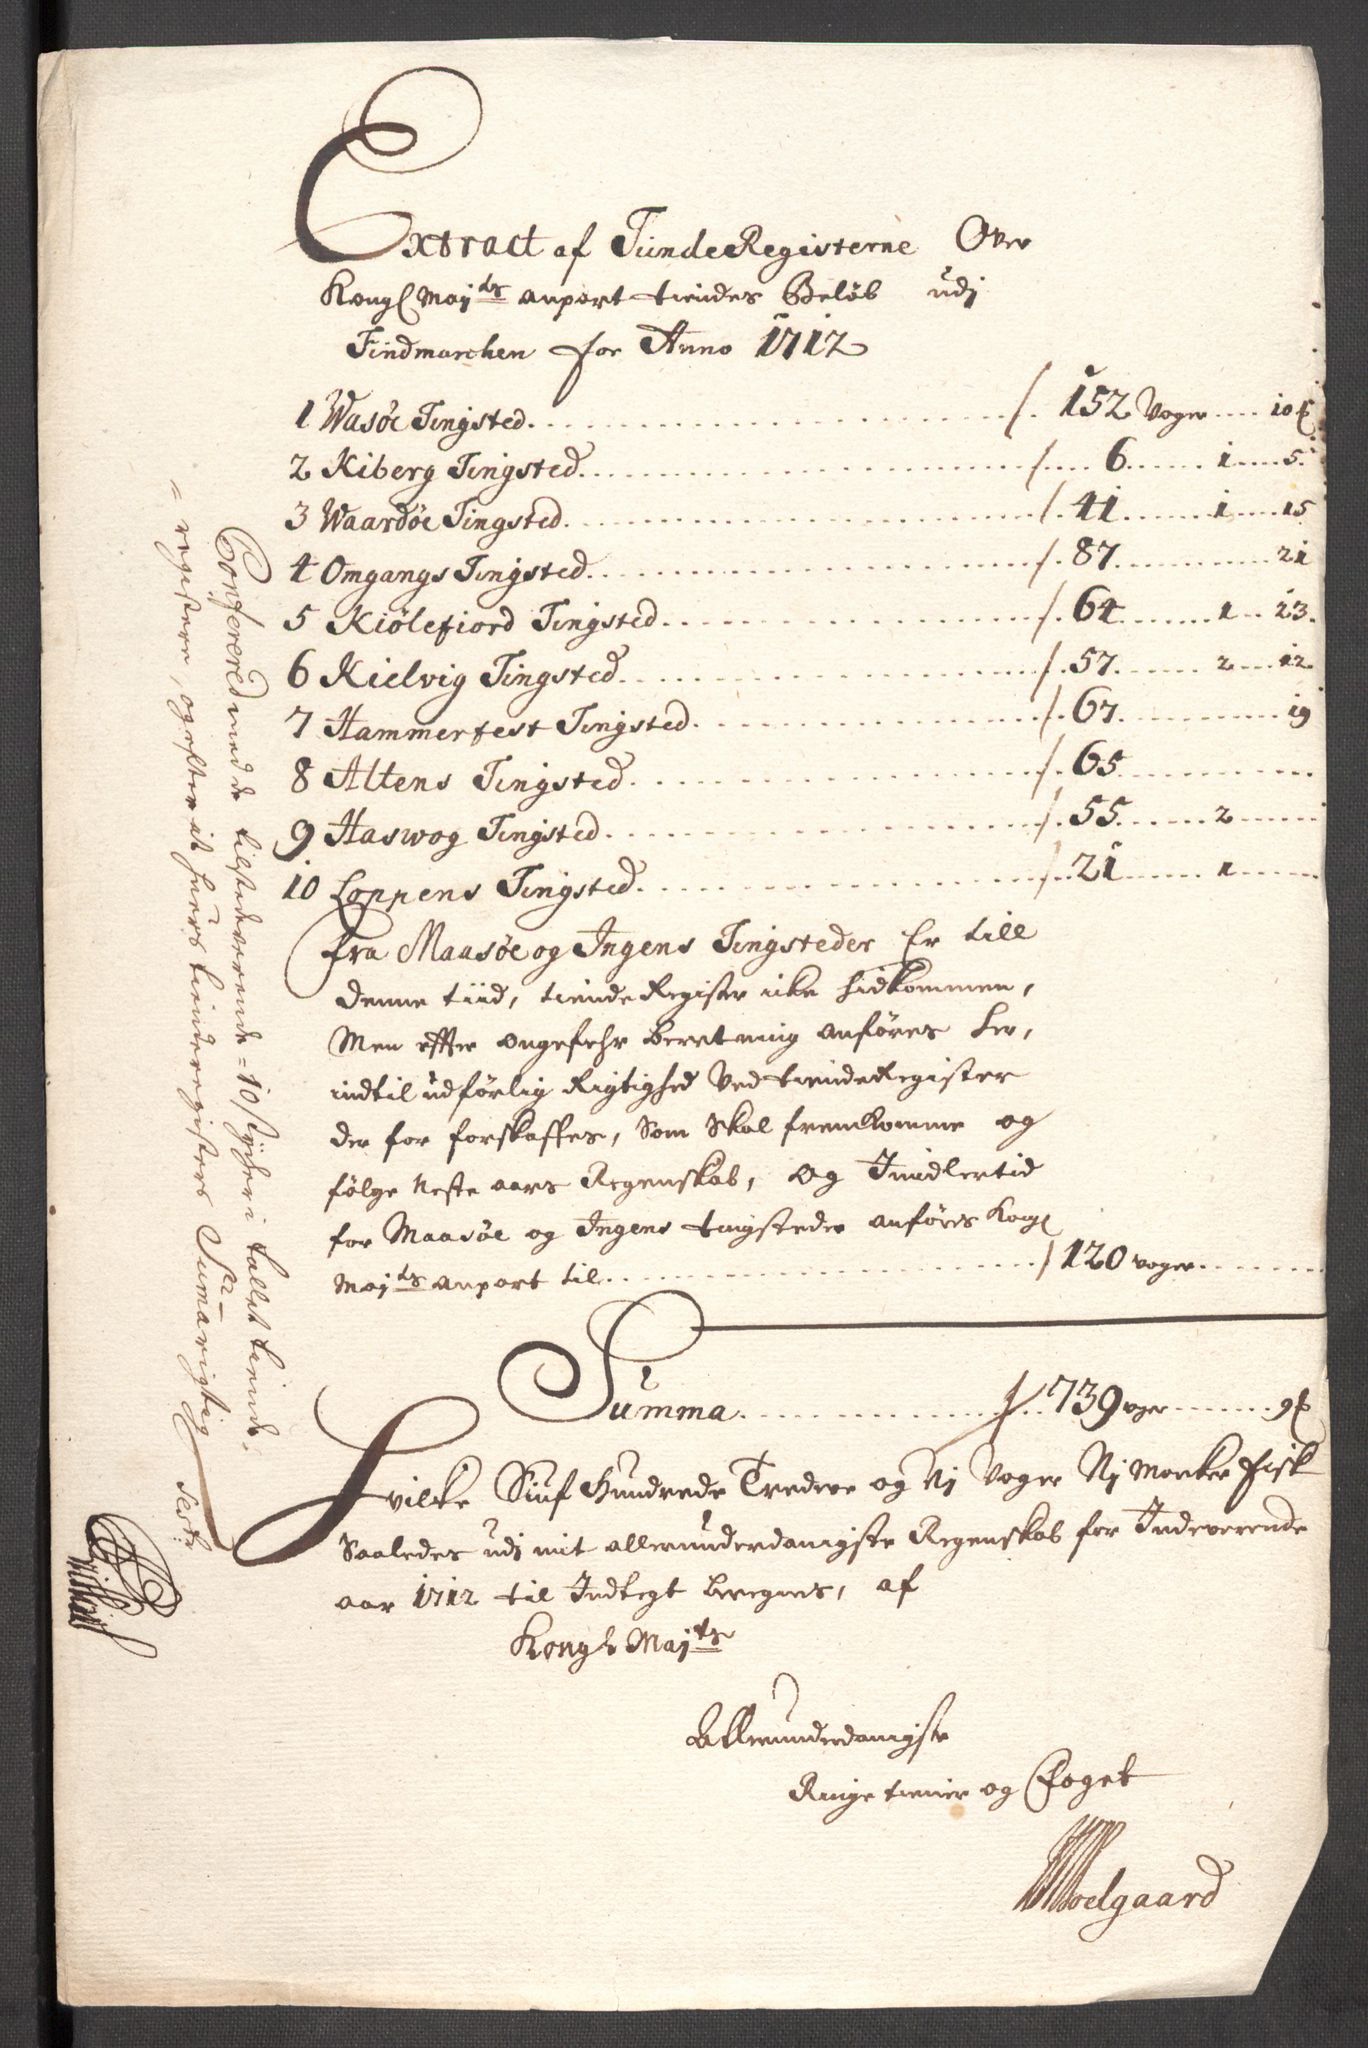 Extract af TiindeRegisterne Over
Kongl May.ts anpart tiendes Beløb udj
Findmarchen for Anno 1712
1 Wasöe Tingsted / 152 Voger 10
2 Kiberg Tingsted / 6 1 5
3 Waardöe Tingsted / 41 1 15
4 Omgangs Tingsted / 87 21
5 Kiölefiord Tingsted / 64 1 23
6 Kielvig Tingsted / 57 2 12
7 Hammerfest Tingsted / 67 19
8 Altens Tingsted / 65
9 Haswog Tingsted / 55 2
10 Loppens Tingsted / 21 1
Fra Maasöe og Ingens Tingsteder Er till
denne tiid, tiende Register icke hidkommen,
Men efter ongefehr beretning anføres her,
indtil udførlig Rigtighed Ved tiendeRegister
der for forskaffes, som skal fremkomme og
følge neste aars Regenskab, og Imidlertid
for Maasöe og Ingens tingsteder anføres Kongl
May.ts anpart til / 120 voger
Summa / 739 voger 9
Hvilke Siuf Hundrede Tredeve og Nj Voger Nj Marker Fisk
Saaledes udj mit allerunderdanigste Regenskab for Indeverende
aar 1712 til Indtegt beregnes, af
Kongl May.ts
Allerunderdanigste
Ringe tiener og Foget
Moelgaard
Confereret med de tilstedeverende 10 stycher i tallet tiende
registere, og efter it huers tienderegisters Summa rigtig